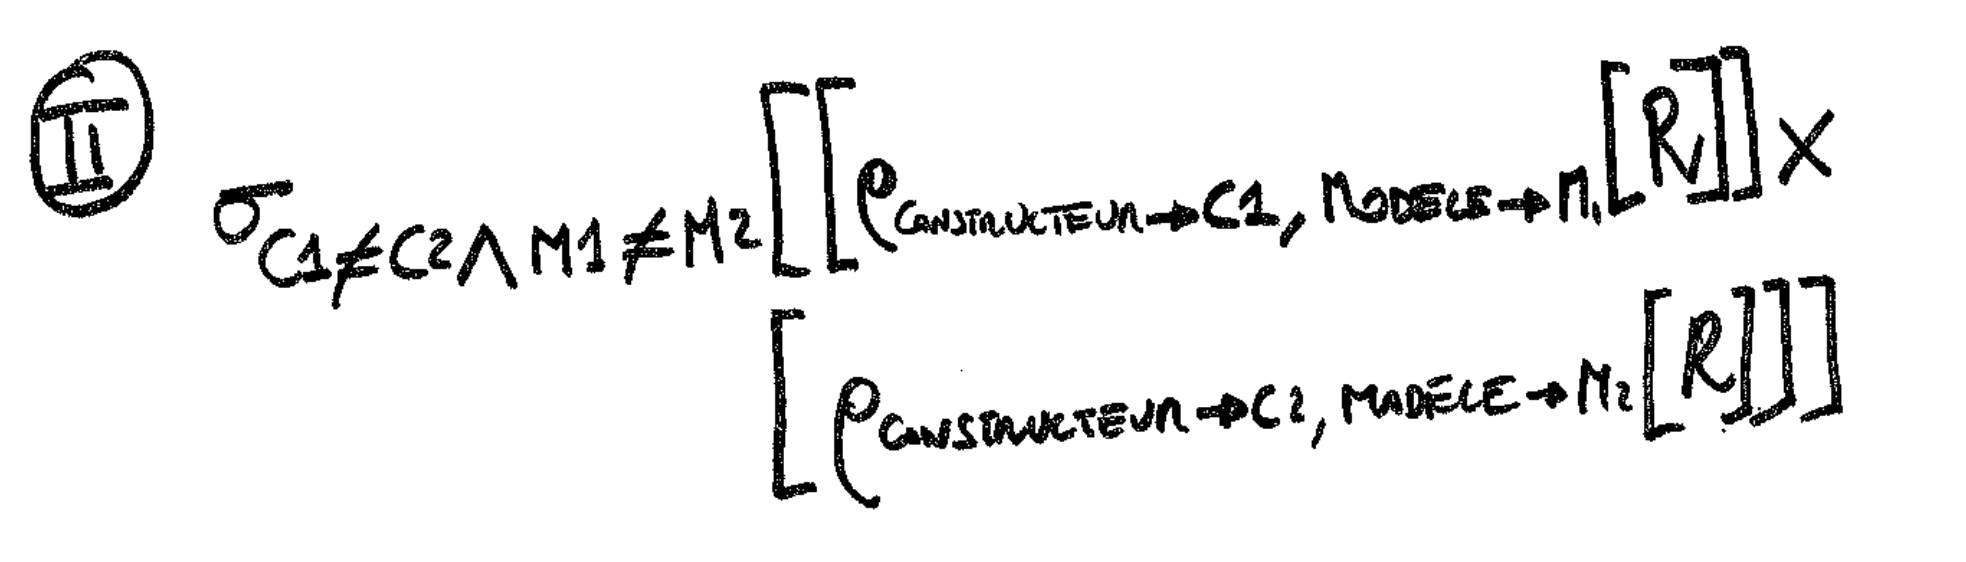 II σ C1≠C2 ∧ M1≠M2 [[ρ CONSTRUCTEUR→C1, MODÈLE→M1 [R]] X
[ρ CONSTRUCTEUR→C2, MODÈLE→M2 [R]]]